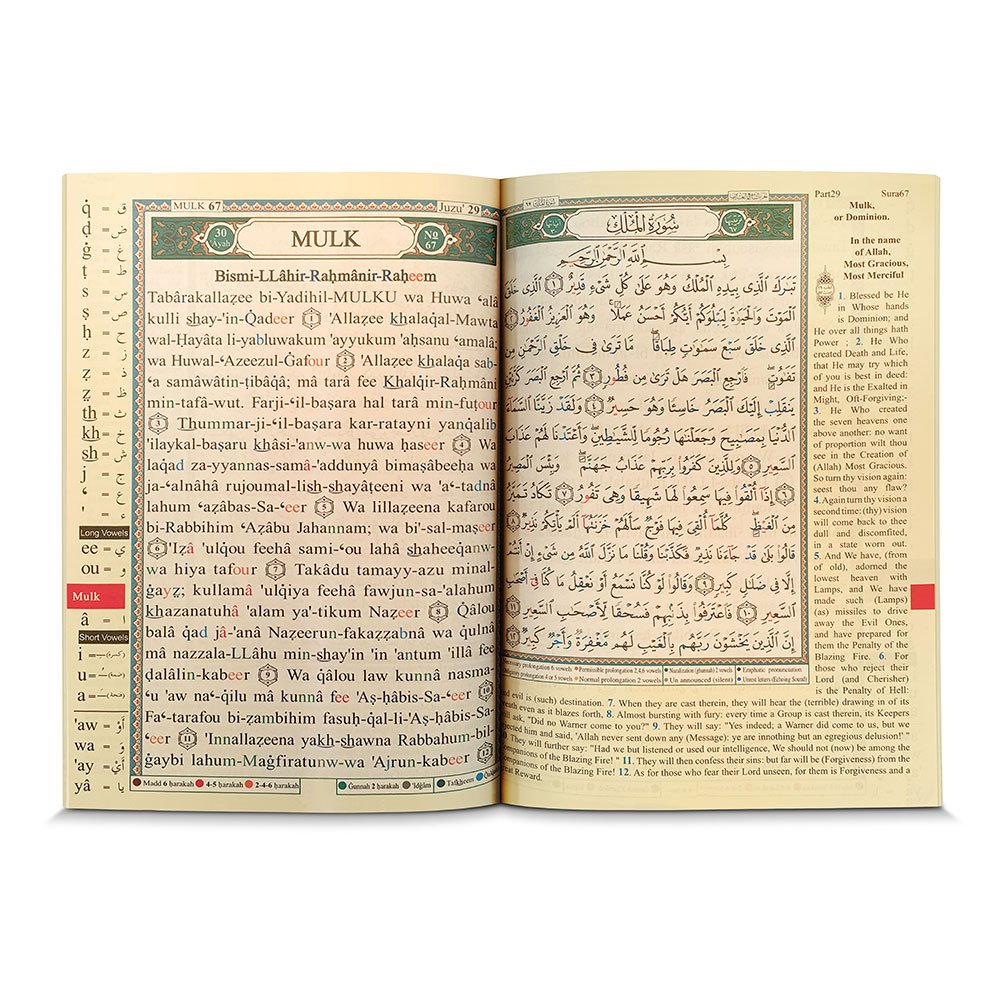 MULK 67
Juzu' 29
30
Ayah
MULK
No
67
Bismi-LLâhir-Raḥmânir-Raḥeem
Tabârakallaẓee bi-Yadihil-MULKU wa Huwa ʻalâ
kulli shay-'in-Q̇adeer 1 'Allaẓee khalaq̇al-Mawta
wal-Ḥayâta li-yabluwakum 'ayyukum 'aḥsanu ʻamalâ;
wa Huwal-ʻAzeezul-Ġafour 2 'Allaẓee khalaq̇a sab-
ʻa samâwâtin-ṭibâq̇â; mâ tarâ fee Khalq̇ir-Raḥmâni
min-tafâ-wut. Farji-ʻil-baṣara hal tarâ min-fuṭour
3 Thummar-ji-ʻil-baṣara kar-ratayni yanq̇alib
'ilaykal-baṣaru khâsi-'anw-wa huwa ḥaseer 4 Wa
laq̇ad za-yyannas-samâ-'addunyâ bimaṣâbeeḥa wa
ja-ʻalnâhâ rujoumal-lish-shayâṭeeni wa 'aʻ-tadnâ
lahum ʻaẓâbas-Sa-ʻeer 5 Wa lillaẓeena kafarou
bi-Rabbihim ʻAẓâbu Jahannam; wa bi'-sal-maṣeer
6 'Iẓâ 'ulq̇ou feehâ sami-ʻou lahâ shaheeq̇anw-
wa hiya tafour 7 Takâdu tamayy-azu minal-
ġayẓ; kullamâ 'ulq̇iya feehâ fawjun-sa-'alahum
khazanatuhâ 'alam ya'-tikum Naẓeer 8 Q̇âlou
balâ q̇ad jâ-'anâ Naẓeerun-fakaẓẓabnâ wa q̇ulnâ
mâ nazzala-LLâhu min-shay'in 'in 'antum 'illâ fee
ḍalâlin-kabeer 9 Wa q̇âlou law kunnâ nasma-
ʻu 'aw naʻ-q̇ilu mâ kunnâ fee 'Aṣ-ḥâbis-Sa-ʻeer 10
Faʻ-tarafou bi-ẓambihim fasuḥ-q̇al-li-'Aṣ-ḥâbis-Sa-
ʻeer 11 'Innallaẓeena yakh-shawna Rabbahum-bil-
ġaybi lahum-Maġfiratunw-wa 'Ajrun-kabeer 12
Madd 6 ḥarakah 4-5 ḥarakah 2-4-6 ḥarakah Ġunnah 2 ḥarakah 'Idġâm Tafkheem
q̇ = ق
ḍ = ض
ġ = غ
ṭ = ط
ṣ = ص
s = س
ḥ = ح
z = ز
ẓ = ذ
ẓ = ظ
th = ث
kh = خ
sh = ش
j = ج
ʻ = ع
' = ء
Long Vowels
ee = ي
ou = و
Mulk
â = ا
Short Vowels
i = (كسرة)
u =
a =
'aw = أَوْ
wa = وَ
'ay = أَيْ
yâ = يا
سُورَةُ المُلْكِ
بِسْمِ اللَّهِ الرَّحْمَنِ الرَّحِيمِ
تَبَٰرَكَ ٱلَّذِى بِيَدِهِ ٱلْمُلْكُ وَهُوَ عَلَىٰ كُلِّ شَىْءٍ قَدِيرٌ ١ ٱلَّذِى خَلَقَ
ٱلْمَوْتَ وَٱلْحَيَوٰةَ لِيَبْلُوَكُمْ أَيُّكُمْ أَحْسَنُ عَمَلًا ۚ وَهُوَ ٱلْعَزِيزُ ٱلْغَفُورُ ٢
ٱلَّذِى خَلَقَ سَبْعَ سَمَٰوَٰتٍ طِبَاقًا ۖ مَّا تَرَىٰ فِى خَلْقِ ٱلرَّحْمَٰنِ مِن
تَفَٰوُتٍ ۖ فَٱرْجِعِ ٱلْبَصَرَ هَلْ تَرَىٰ مِن فُطُورٍ ٣ ثُمَّ ٱرْجِعِ ٱلْبَصَرَ كَرَّتَيْنِ
يَنقَلِبْ إِلَيْكَ ٱلْبَصَرُ خَاسِئًا وَهُوَ حَسِيرٌ ٤ وَلَقَدْ زَيَّنَّا ٱلسَّمَآءَ
ٱلدُّنْيَا بِمَصَٰبِيحَ وَجَعَلْنَٰهَا رُجُومًا لِّلشَّيَٰطِينِ ۖ وَأَعْتَدْنَا لَهُمْ عَذَابَ
ٱلسَّعِيرِ ٥ وَلِلَّذِينَ كَفَرُوا۟ بِرَبِّهِمْ عَذَابُ جَهَنَّمَ ۖ وَبِئْسَ ٱلْمَصِيرُ
٦ إِذَآ أُلْقُوا۟ فِيهَا سَمِعُوا۟ لَهَا شَهِيقًا وَهِىَ تَفُورُ ٧ تَكَادُ تَمَيَّزُ
مِنَ ٱلْغَيْظِ ۖ كُلَّمَآ أُلْقِىَ فِيهَا فَوْجٌ سَأَلَهُمْ خَزَنَتُهَآ أَلَمْ يَأْتِكُمْ نَذِيرٌ ٨
قَالُوا۟ بَلَىٰ قَدْ جَآءَنَا نَذِيرٌ فَكَذَّبْنَا وَقُلْنَا مَا نَزَّلَ ٱللَّهُ مِن شَىْءٍ إِنْ أَنتُمْ
إِلَّا فِى ضَلَٰلٍ كَبِيرٍ ٩ وَقَالُوا۟ لَوْ كُنَّا نَسْمَعُ أَوْ نَعْقِلُ مَا كُنَّا فِىٓ أَصْحَٰبِ
ٱلسَّعِيرِ ١٠ فَٱعْتَرَفُوا۟ بِذَنۢبِهِمْ فَسُحْقًا لِّأَصْحَٰبِ ٱلسَّعِيرِ ١١
إِنَّ ٱلَّذِينَ يَخْشَوْنَ رَبَّهُم بِٱلْغَيْبِ لَهُم مَّغْفِرَةٌ وَأَجْرٌ كَبِيرٌ ١٢
prolongation 6 vowels Permissible prolongation 2,4,6 vowels Nazalization (ghunnah) 2 vowels Emphatic pronunciation
prolongation 4 or 5 vowels Normal prolongation 2 vowels Un announced (silent) Unrest letters (Echoing Sound)
Part29 Sura67
Mulk,
or Dominion.
In the name
of Allah,
Most Gracious,
Most Merciful
1. Blessed be He
in Whose hands
is Dominion; and
He over all things hath
Power ; 2. He Who
created Death and Life,
that He may try which
of you is best in deed:
and He is the Exalted in
Might, Oft-Forgiving;-
3. He Who created
the seven heavens one
above another: no want
of proportion wilt thou
see in the Creation of
(Allah) Most Gracious.
So turn thy vision again:
seest thou any flaw?
4. Again turn thy vision a
second time: (thy) vision
will come back to thee
dull and discomfited,
in a state worn out.
5. And We have, (from
of old), adorned the
lowest heaven with
Lamps, and We have
made such (Lamps)
(as) missiles to drive
away the Evil Ones,
and have prepared for
them the Penalty of the
Blazing Fire. 6. For
those who reject their
Lord (and Cherisher)
is the Penalty of Hell:
and evil is (such) destination. 7. When they are cast therein, they will hear the (terrible) drawing in of its
breath even as it blazes forth, 8. Almost bursting with fury: every time a Group is cast therein, its Keepers
will ask, "Did no Warner come to you?" 9. They will say: "Yes indeed; a Warner did come to us, but we
rejected him and said, 'Allah never sent down any (Message): ye are innothing but an egregious delusion!' "
They will further say: "Had we but listened or used our intelligence, We should not (now) be among the
companions of the Blazing Fire! " 11. They will then confess their sins: but far will be (Forgiveness) from the
Companions of the Blazing Fire! 12. As for those who fear their Lord unseen, for them is Forgiveness and a
Great Reward.